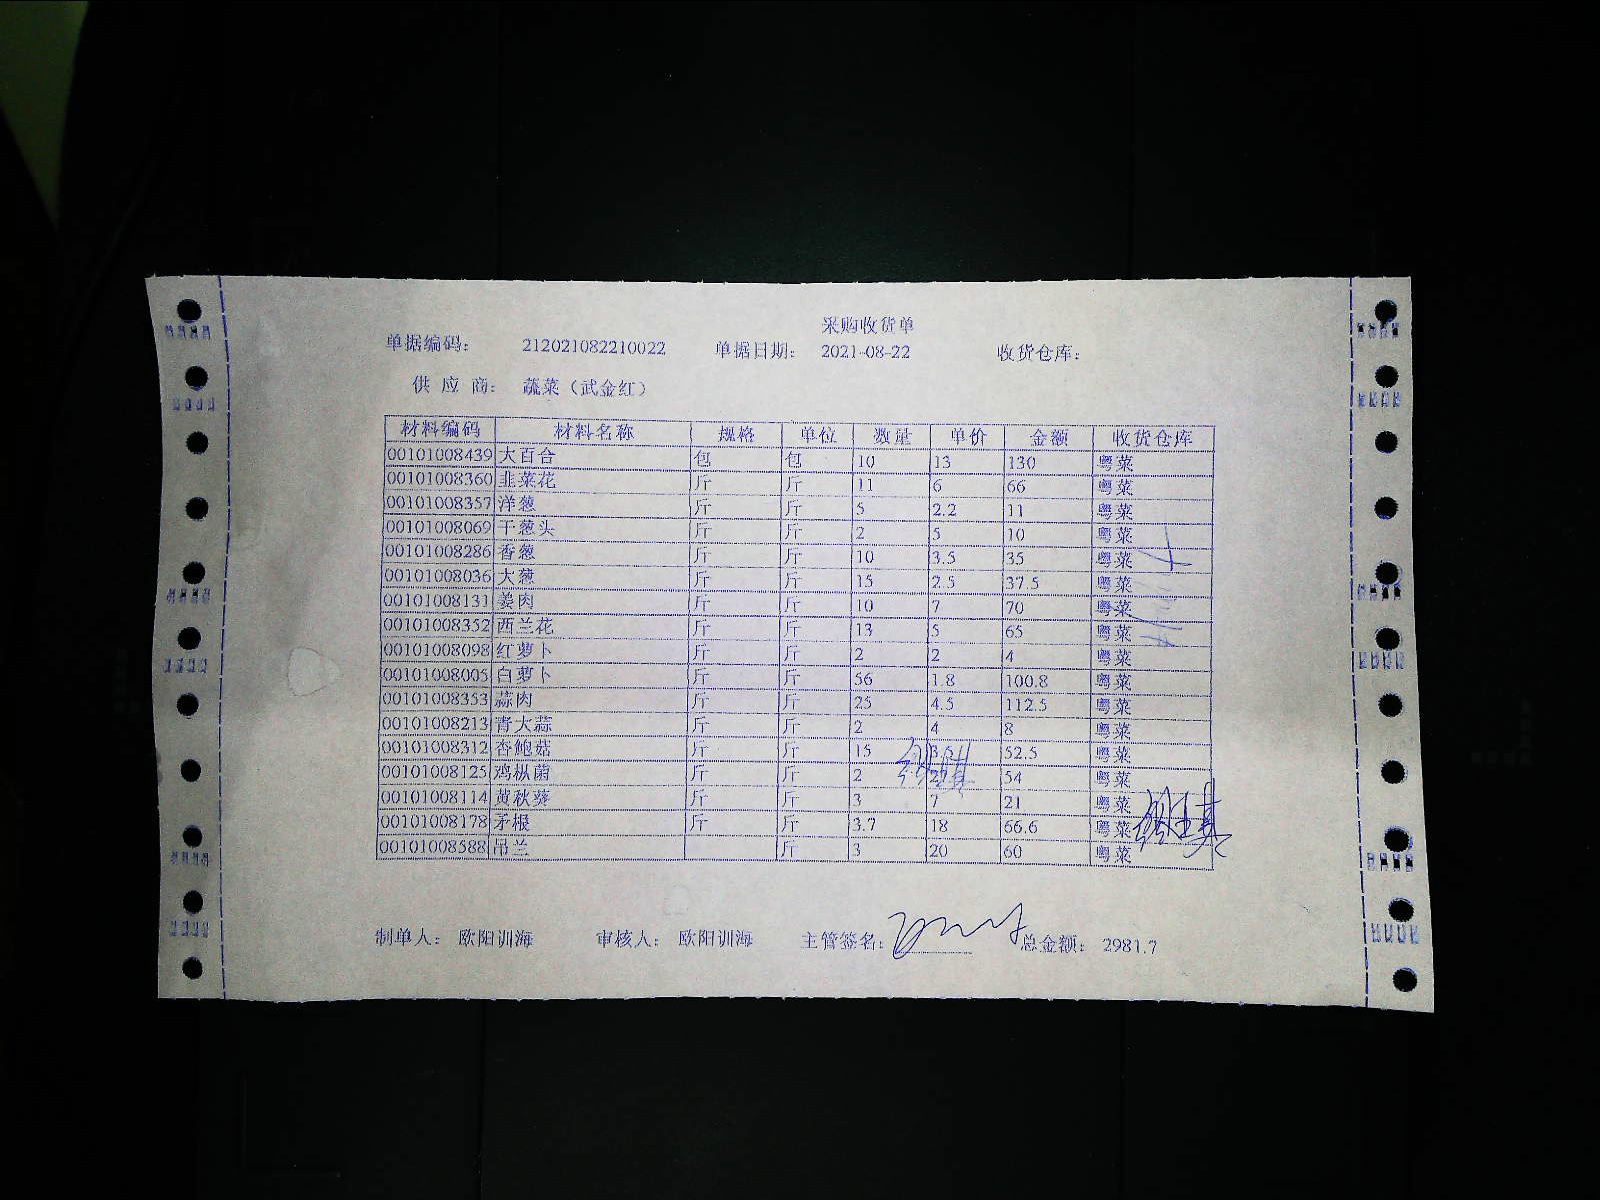 采购收货单
单据编码： 212021082210022 单据日期： 2021-08-22 收货仓库：
供 应 商： 蔬菜（武金红）
材料编码 材料名称 规格 单位 数量 单价 金额 收货仓库
00101008439 大百合 包 包 10 13 130 粤菜
00101008360 韭菜花 斤 斤 11 6 66 粤菜
00101008357 洋葱 斤 斤 5 2.2 11 粤菜
00101008069 干葱头 斤 斤 2 5 10 粤菜
00101008286 香葱 斤 斤 10 3.5 35 粤菜
00101008036 大葱 斤 斤 15 2.5 37.5 粤菜
00101008131 姜肉 斤 斤 10 7 70 粤菜
00101008352 西兰花 斤 斤 13 5 65 粤菜
00101008098 红萝卜 斤 斤 2 2 4 粤菜
00101008005 白萝卜 斤 斤 56 1.8 100.8 粤菜
00101008353 蒜肉 斤 斤 25 4.5 112.5 粤菜
00101008213 青大蒜 斤 斤 2 4 8 粤菜
00101008312 杏鲍菇 斤 斤 15 3.5 52.5 粤菜
00101008125 鸡枞菌 斤 斤 2 27 54 粤菜
00101008114 黄秋葵 斤 斤 3 7 21 粤菜
00101008178 矛根 斤 斤 3.7 18 66.6 粤菜
00101008588 吊兰 斤 3 20 60 粤菜
制单人： 欧阳训海 审核人： 欧阳训海 主管签名： 总金额： 2981.7